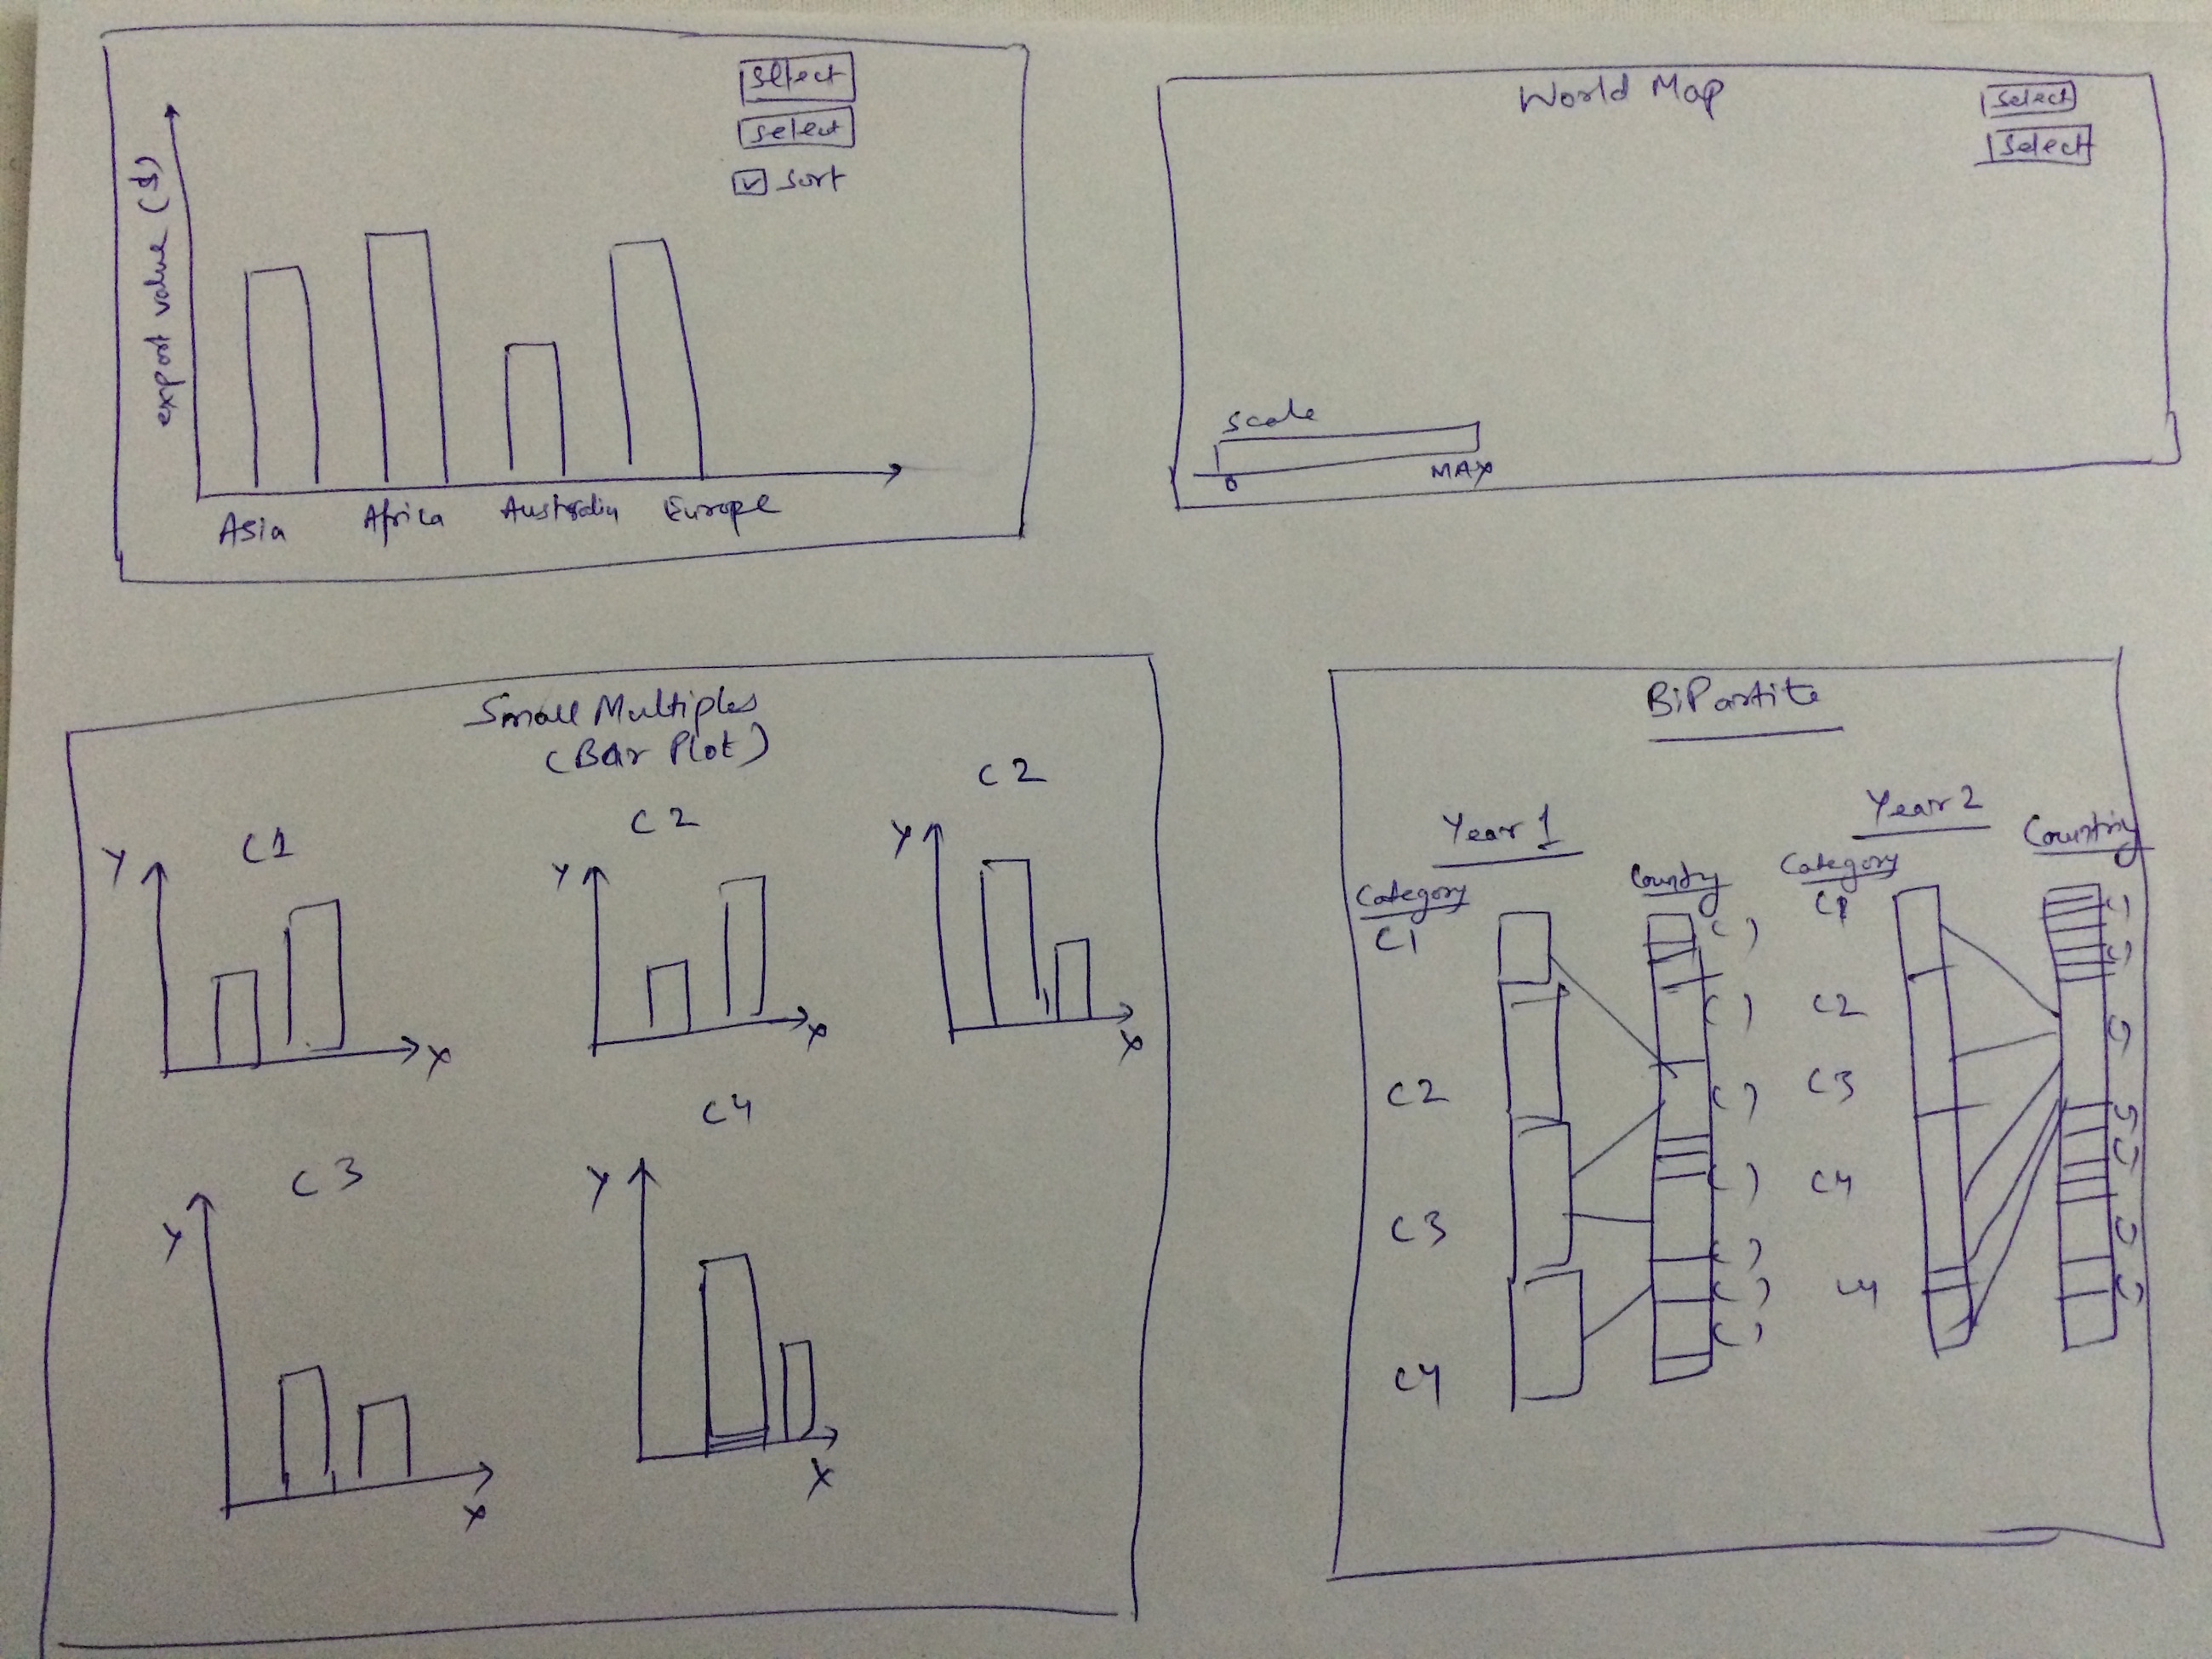 select
select
sort
export value ($)
Asia
Africa
Australia
Europe
World Map
select
select
scale
0
MAX
Small Multiples
(Bar Plot)
C1
Y
X
C2
Y
X
C2
Y
X
C3
Y
X
C4
Y
X
BiPartite
Year 1
Category
Country
C1
C2
C3
C4
Year 2
Category
Country
C1
C2
C3
C4